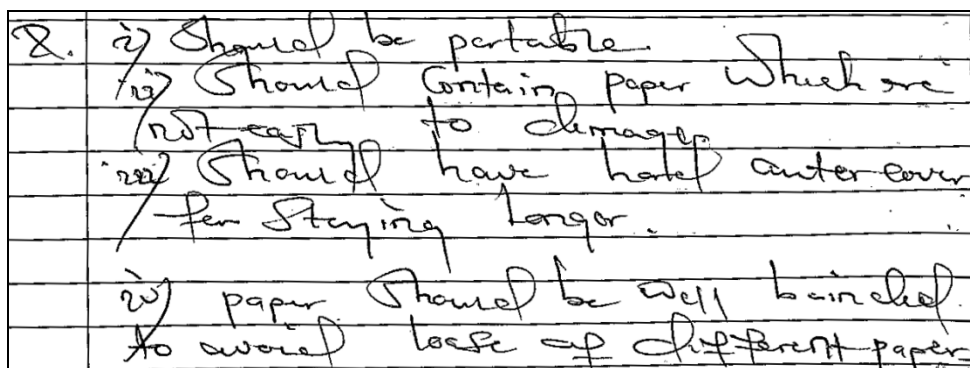 8. i) Should be portable.
ii) Should Contain paper which are
not easily to damages
iii) Should have hard outer cover
for Staying Longer.
iv) paper Should be well bainded.
to avoid lose of different paper